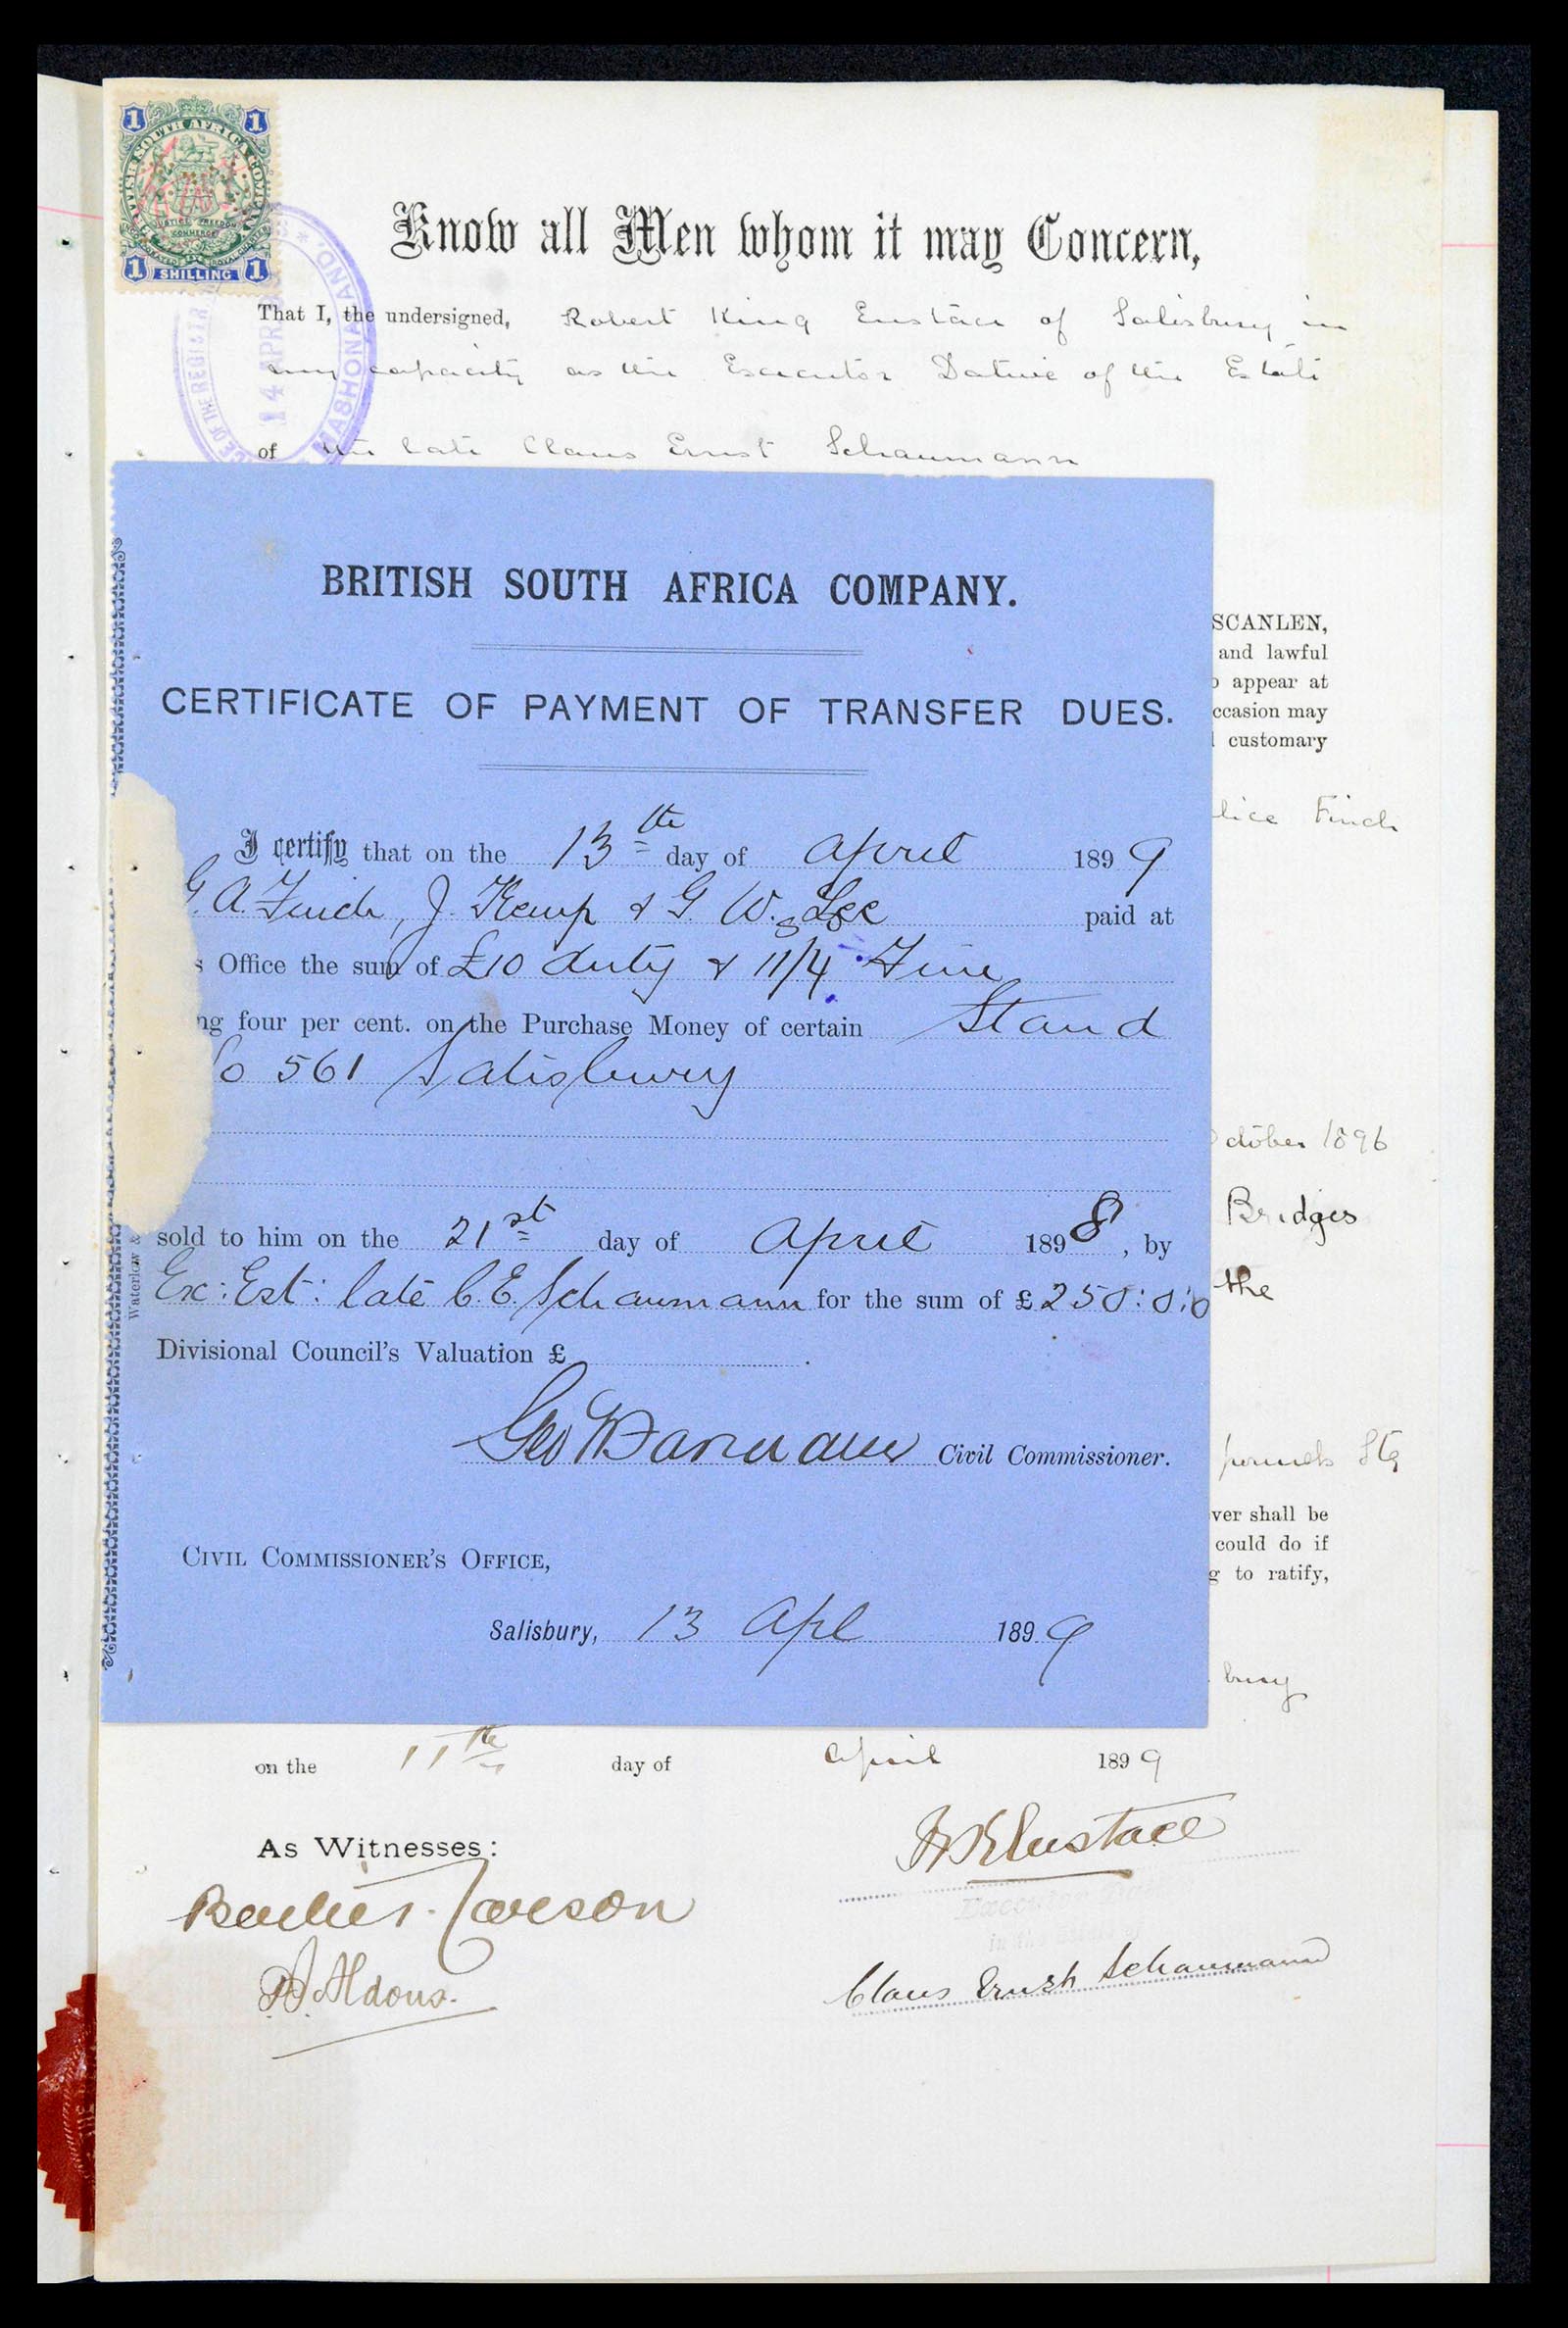 1 1
BRITISH SOUTH AFRICA COMPANY
JUSTICE FREEDOM
COMMERCE
1 SHILLING 1
OFFICE OF THE REGISTR
14 APR
MASHONALAND
Know all Men whom it may Concern,
That I, the undersigned, Robert King Eustace of Salisbury in
my capacity as the Executor Dative of the Estate
of the late Claus Ernst Schaumann
BRITISH SOUTH AFRICA COMPANY.
SCANLEN,
and lawful
o appear at
CERTIFICATE OF PAYMENT OF TRANSFER DUES.
ccasion may
customary
lice Finch
I certify that on the 13th day of April 1899
G. A. Finch, J. Kemp & G. W. Lee paid at
s Office the sum of £10 duty & 11/4 Fine
ng four per cent. on the Purchase Money of certain Stand
o 561 Salisbury
ctober 1896
Bridges
sold to him on the 21st day of April 1898, by
the
Ex: Est: late C. E. Schaumann for the sum of £250:0:0
Waterlow &
Divisional Council's Valuation £
Civil Commissioner.
ver shall be
could do if
g to ratify,
CIVIL COMMISSIONER'S OFFICE,
Salisbury, 13 Apl 1899
bury
on the 11th day of April 1899
As Witnesses:
R K Eustace
Executor Dative
in the Estate
Claus Ernst Schaumann